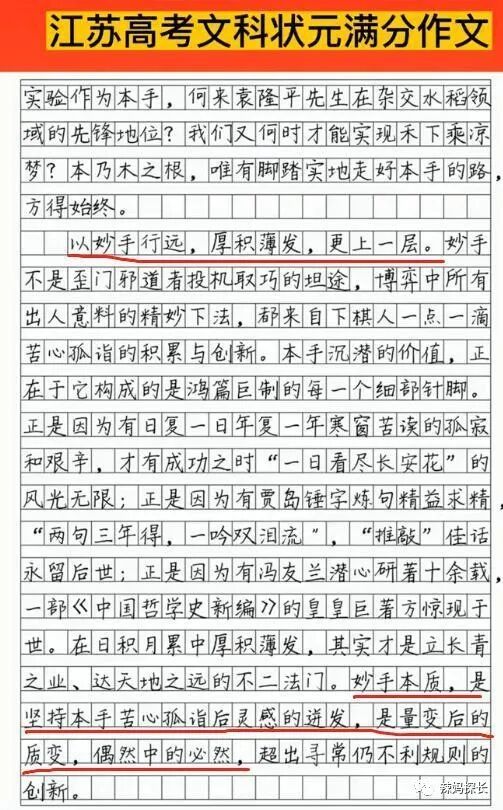 江苏高考文科状元满分作文
实验作为本手，何来袁隆平先生在杂交水稻领
域的先锋地位？我们又何时才能实现禾下乘凉
梦？本乃木之根，唯有脚踏实地走好本手的路，
方得始终。
以妙手行远，厚积薄发，更上一层。妙手
不是歪门邪道者投机取巧的坦途，博弈中所有
出人意料的精妙下法，都来自下棋人一点一滴
苦心孤诣的积累与创新。本手沉潜的价值，正
在于它构成的是鸿篇巨制的每一个细部针脚。
正是因为有日复一日年复一年寒窗苦读的孤寂
和艰辛，才有成功之时“一日看尽长安花”的
风光无限；正是因为有贾岛锤字炼句精益求精，
“两句三年得，一吟双泪流”，“推敲”佳话
永留后世；正是因为有冯友兰潜心研著十余载，
一部《中国哲学史新编》的皇皇巨著方惊现于
世。在日积月累中厚积薄发，其实才是立长青
之业、达天地之远的不二法门。妙手本质，是
坚持本手苦心孤诣后灵感的迸发，是量变后的
质变，偶然中的必然，超出寻常仍不利规则的
创新。
辣妈探长